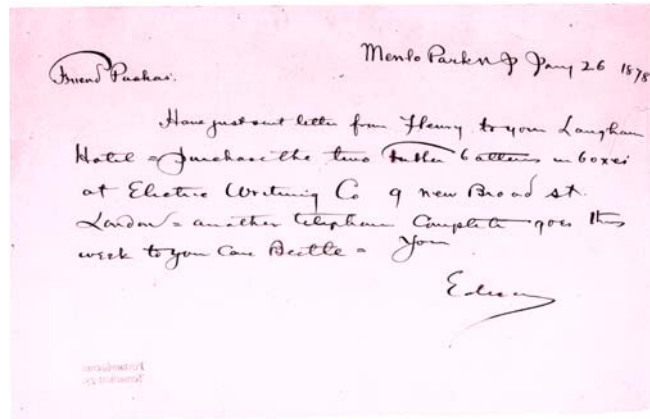 Menlo Park N J Jany 26 1878
Friend Puskas.
Have just sent letter from Henry to your Langham
Hotel = purchase the two batteries in boxes
at Electric Writing Co 9 new Broad st.
London = another telephone Complete goes this
week to you Care Beetle = Your
Edison